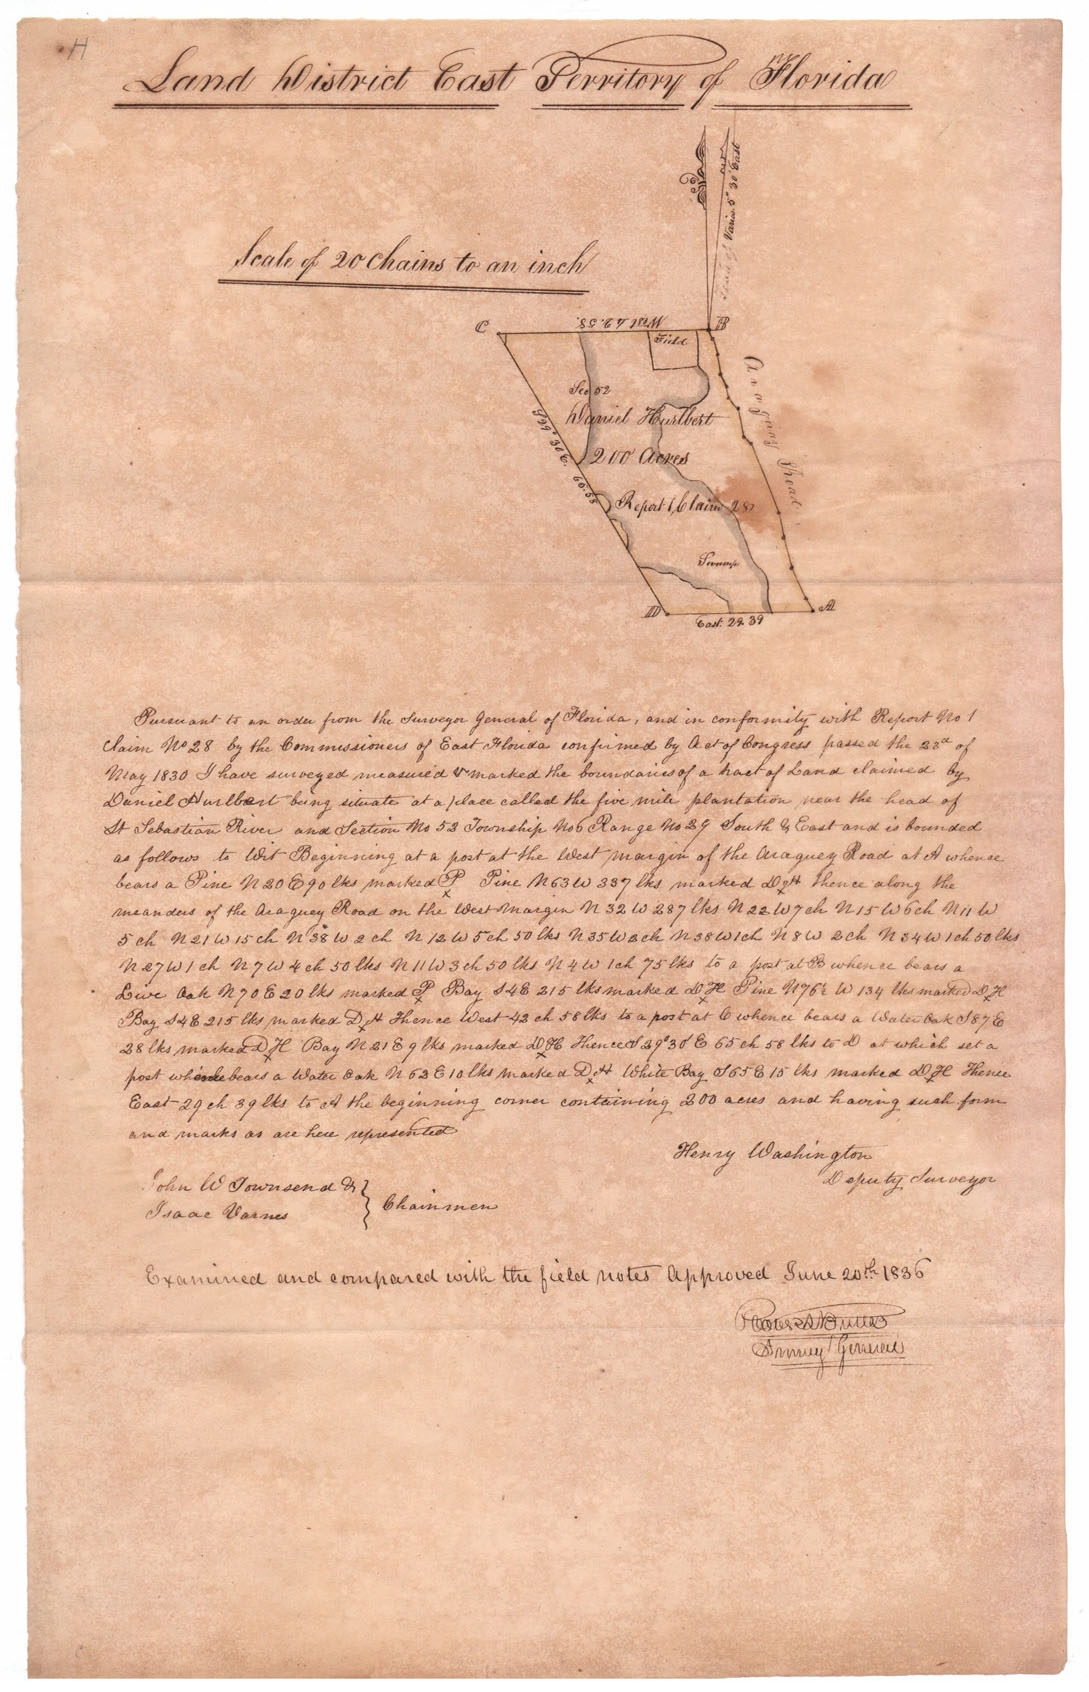 H
Land District East Territory of Florida
Scale of 20 Chains to an inch
Varia. 5° 30' East
C
West 42.58.
B
Field
Sec 52
Daniel Hurlbert
200 Acres
Report 1, Claim 28
Swamp
S 29° 30' E. 65.58
Araguey Road
D
East. 29.39
A
Pursuant to an order from the Surveyor General of Florida, and in conformity with Report No 1
Claim No 28 by the Commissioners of East Florida confirmed by Act of Congress passed the 23d of
May 1830 I have surveyed measured & marked the boundaries of a tract of Land claimed by
Daniel Hurlbert being situate at a place called the five mile plantation near the head of
St Sebastian River and Section No 52 Township No 6 Range No 29 South & East and is bounded
as follows to Wit Beginning at a post at the West margin of the Araguey Road at A whence
bears a Pine N 20 E 90 lks marked P Pine N 63 W 337 lks marked D H thence along the
meanders of the Araguey Road on the West Margin N 32 W 287 lks N 22 W 7 ch N 15 W 6 ch N 11 W
5 ch N 21 W 15 ch N 38 W 2 ch N 12 W 5 ch 50 lks N 35 W 2 ch N 28 W 1 ch N 8 W 2 ch N 34 W 1 ch 50 lks
N 27 W 1 ch N 7 W 4 ch 50 lks N 11 W 3 ch 50 lks N 4 W 1 ch 75 lks to a post at B whence bears a
Live Oak N 70 E 20 lks marked P Bay S 4 E 215 lks marked D H Pine N 76 W 134 lks marked D H
Bay S 4 E 215 lks marked D H Thence West 42 ch 58 lks to a post at C whence bears a Water Oak S 87 E
28 lks marked D H Bay N 21 E 9 lks marked D H Thence S 29° 30' E 65 ch 58 lks to D at which set a
post whence bears a Water Oak N 62 E 10 lks marked D H White Bay S 65 E 15 lks marked D H Thence
East 29 ch 39 lks to A the beginning corner containing 200 acres and having such form
and marks as are here represented
Henry Washington
Deputy Surveyor
John W Townsend &
Isaac Varnes
Chainmen
Examined and compared with the field notes Approved June 20th 1836
Robert Butler
Surveyor General